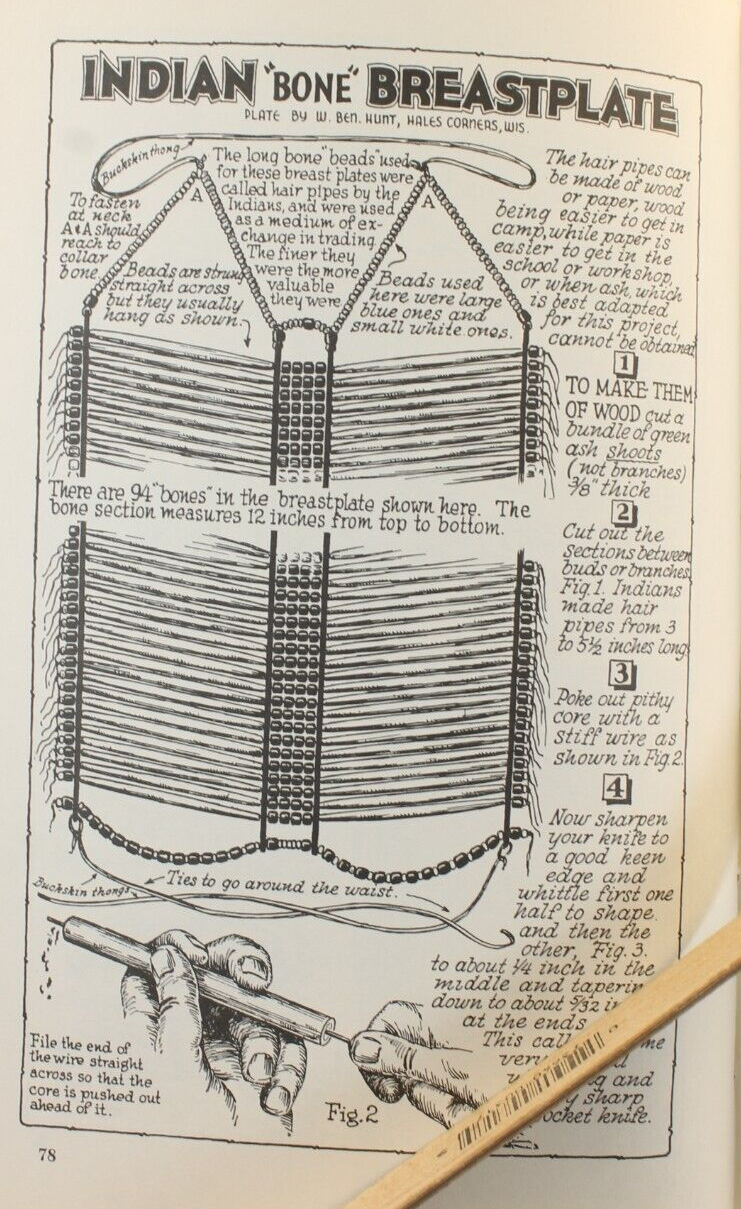 INDIAN "BONE" BREASTPLATE
PLATE BY W. BEN. HUNT, HALES CORNERS, WIS.
Buckskin thong
The long bone "beads" used
for these breast plates were
called hair pipes by the
Indians, and were used
as a medium of ex-
change in trading.
The finer they
were the more
valuable
they were
A
A
To fasten
at neck
A & A should
reach to
collar
bone.
Beads are strung
straight across
but they usually
hang as shown.
Beads used
here were large
blue ones and
small white ones.
The hair pipes can
be made of wood
or paper, wood
being easier to get in
camp, while paper is
easier to get in the
school or workshop,
or when ash, which
is best adapted
for this project,
cannot be obtained
1
TO MAKE THEM
OF WOOD cut a
bundle of green
ash shoots
(not branches)
3/8" thick
There are 94 "bones" in the breastplate shown here. The
bone section measures 12 inches from top to bottom.
2
Cut out the
sections between
buds or branches,
Fig. 1. Indians
made hair
pipes from 3
to 5½ inches long
3
Poke out pithy
core with a
stiff wire as
shown in Fig. 2.
4
Now sharpen
your knife to
a good keen
edge and
whittle first one
half to shape.
and then the
other, Fig. 3.
to about ¼ inch in the
middle and taperin
down to about 5/32 in
at the ends
This call me
very
g and
y sharp
ocket knife.
Buckskin thongs
Ties to go around the waist.
File the end of
the wire straight
across so that the
core is pushed out
ahead of it.
Fig. 2
78